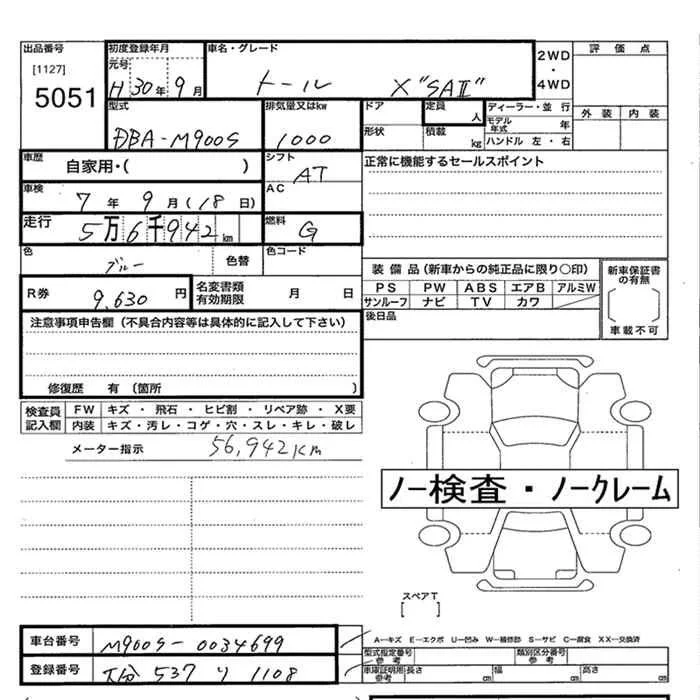 出品番号 初度登録年月 車名・グレード 2WD・4WD 評価点
[1127] 元号
5051 H30年9月 トール X"SAⅡ"
型式 排気量又はkw ドア 定員 人 ディーラー・並行 外装 内装
DBA-M900S 1000 形状 積載 kg モデル年式 年
ハンドル 左・右
車歴 自家用・( ) シフト AT 正常に機能するセールスポイント
車検 7年9月(18日) AC
走行 5万6千942km 燃料 G
色 ブルー 色替 色コード
装備品(新車からの純正品に限り○印) 新車保証書の有無
R券 9,630円 名変書類有効期限 月 日 PS PW ABS エアB アルミW
サンルーフ ナビ TV カワ 車載不可
注意事項申告欄(不具合内容等は具体的に記入して下さい) 後日品
修復歴 有(箇所 )
検査員記入欄 FW キズ・飛石・ヒビ割・リペア跡・X要
内装 キズ・汚レ・コゲ・穴・スレ・キレ・破レ
メーター指示 56,942Km
ノー検査・ノークレーム
スペアT
[ ]
車台番号 M900S-0034699 A—キズ E—エクボ U—凹み W—補修跡 S—サビ C—腐食 XX—交換済
型式指定番号 参考 類別区分番号 参考
登録番号 大分 537 り 1108 車庫証明用 参考 長さ cm 幅 cm 高さ cm